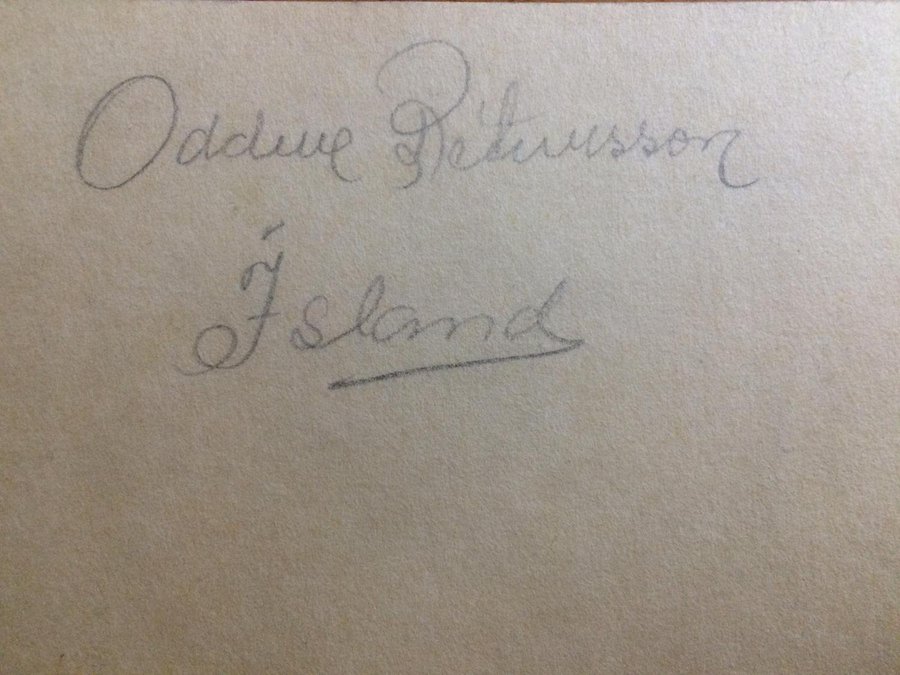 Oddur Pétursson
Ísland